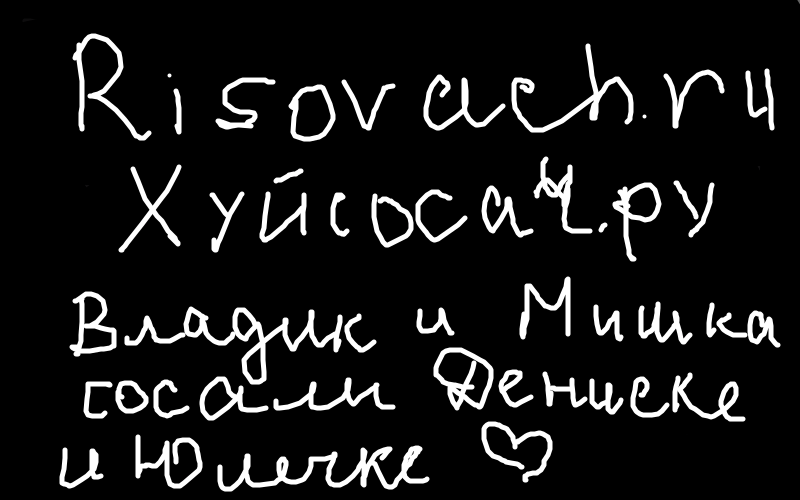 Risovach.ru
Хуйсосач.ру
Владик и Мишка
сосали Дениске
и Юлечке